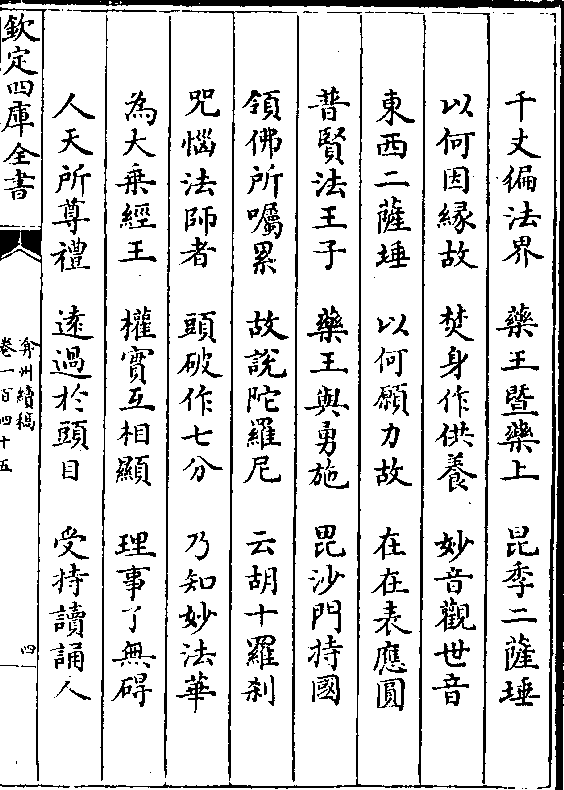 千丈徧法界　藥王暨藥上　昆季二薩埵
以何因緣故　焚身作供養　妙音觀世音
東西二薩埵　以何願力故　在在表應圓
普賢法王子　藥王與勇施　毘沙門持國
領佛所囑累　故說陀羅尼　云胡十羅刹
咒惱法師者　頭破作七分　乃知妙法華
為大乗經王　權實互相顯　理事了無碍
人天所尊禮　遠過於頭目　受持讀誦人
欽定四庫全書
弇州續稿
卷一百四十五
四